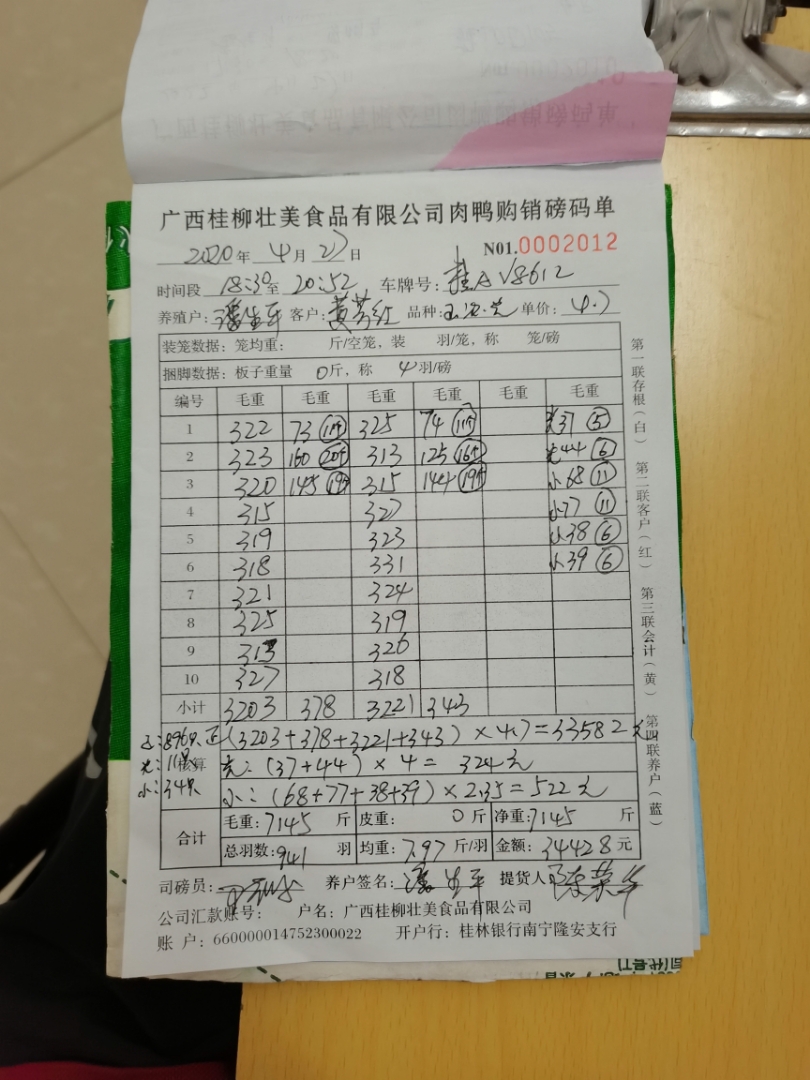 广西桂柳壮美食品有限公司肉鸭购销磅码单
2020年 4月 27日 N01.0002012
时间段 18:30至 20:52 车牌号: 桂A V8612
养殖户: 潘生平 客户: 黄芳红 品种: 单价: 4.7
装笼数据: 笼均重: 斤/空笼, 装 羽/笼, 称 笼/磅
捆脚数据: 板子重量 0斤, 称 4羽/磅
编号 毛重 毛重 毛重 毛重 毛重 毛重
1 322 73 325 74 37 ⑤
2 323 160 313 125 44 ⑥
3 320 145 315 144 小68 ⑪
4 315 327 小77 ⑪
5 319 323 小38 ⑥
6 318 331 小39 ⑥
7 321 324
8 325 319
9 313 326
10 327 318
小计 3203 378 3221 343
正:896只 正(3203+378+3221+343)×4.7=33582元
11只 核算 :(37+44)×4=324元
小:34只 小:(68+77+38+39)×2.35=522元
合计 毛重:7145 斤 皮重: 0斤 净重:7145 斤
总羽数:941 羽 均重:7.97 斤/羽 金额:34428元
司磅员: 养户签名:潘生平 提货人:陈荣华
公司汇款账号: 户名: 广西桂柳壮美食品有限公司
账 户: 660000014752300022 开户行: 桂林银行南宁隆安支行
第一联存根(白) 第二联客户(红) 第三联会计(黄) 第四联养户(蓝)